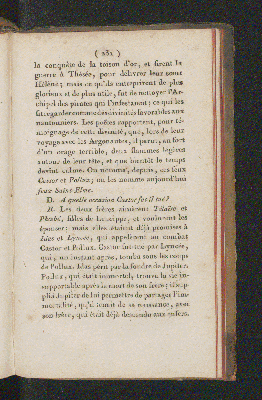 ( 232 )
la conquête de la toison d'or, et firent la
guerre à Thésée, pour délivrer leur sœur
Hélène; mais ce qu'ils entreprirent de plus
glorieux et de plus utile, fut de nettoyer l'Ar-
chipel des pirates qui l'infestaient; ce qui les
fit regarder comme des divinités favorables aux
nautonniers. Les poëtes rapportent, pour té-
moignage de cette divinité, que, lors de leur
voyage avec les Argonautes, il parut, au fort
d'un orage terrible, deux flammes légères
autour de leur tête, et que bientôt le temps
devint calme. On nomma, depuis, ces feux
Castor et Pollux; on les nomme aujourd'hui
feux Saint-Elme.
D. A quelle occasion Castor fut-il tué?
R. Les deux frères aimaient Télaïre et
Phœbé, filles de Leucippe, et voulurent les
épouser; mais elles étaient déjà promises à
Idas et Lyncée, qui appelèrent au combat
Castor et Pollux. Castor fut tué par Lyncée,
qui, un instant après, tomba sous les coups
de Pollux. Idas périt par la foudre de Jupiter.
Pollux, qui était immortel, trouva la vie in-
supportable après la mort de son frère; il sup-
plia Jupiter de lui permettre de partager l'im-
mortalité, qu'il tenait de sa naissance, avec
son frère, qui était déjà descendu aux enfers.